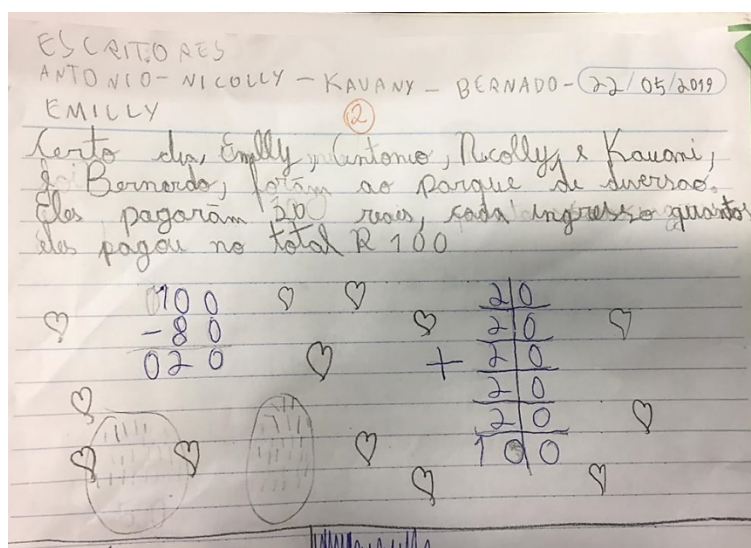 ESCRITORES
ANTONIO - NICOLLY - KAUANY - BERNADO - 22/05/2019
EMILLY
2
Certo dia, Emilly, Antonio, Nicolly, e Kauani,
Bernardo, foram ao parque de diversao.
Eles pagaram 20 reais, cada ingresso quantos
eles pagou no total R 100
100
- 80
020
20
20
+ 20
20
20
100